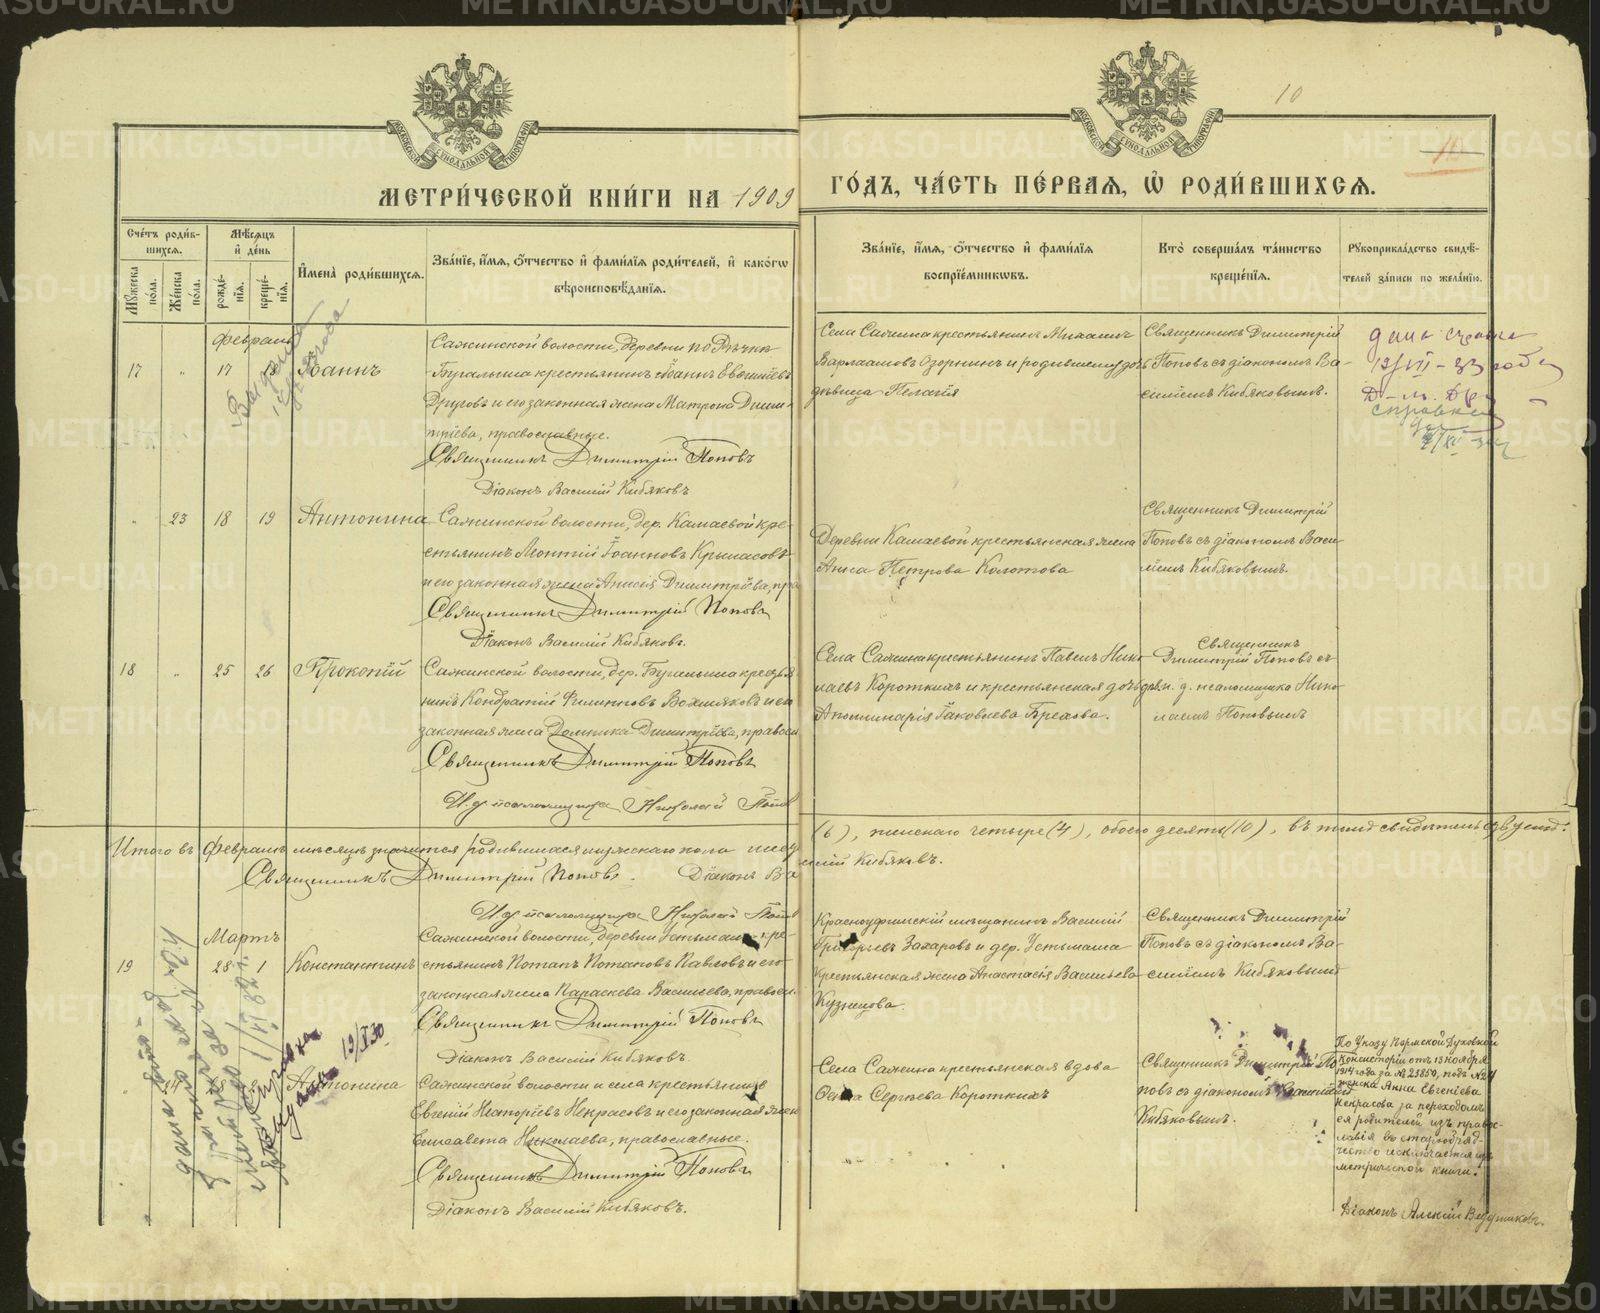 METRIKI.GASO-URAL.RU
МОСКОВСКОЙ СѴНОДАЛЬНОЙ ТИПОГРАФІИ
МОСКОВСКОЙ СѴНОДАЛЬНОЙ ТИПОГРАФІИ
10
10
МЕТРИ́ЧЕСКОЙ КНИ́ГИ НА 1909 ГО́ДЪ, ЧА́СТЬ ПЕ́РВАЯ, Ѡ РОДИ́ВШИХСЯ.
Сче́тъ роди́в-
шихся.
Му́жеска по́ла.
Же́нска по́ла.
Мѣ́сяцъ
и҆ де́нь
рожде́-
нїя.
креще́-
нїя.
И҆мена̀ роди́вшихся.
Зва́нїе, и҆́мя, ѻ҆́тчество и҆ фами́лїя роди́телей, и҆ како́гѡ
вѣроисповѣ́данїя.
Зва́нїе, и҆́мя, ѻ҆́тчество и҆ фами́лїя
воспрїе́мникѡвъ.
Кто̀ соверша́лъ та́инство
креще́нїя.
Рꙋкоприкла́дство свидѣ́-
телей за́писи по жела́нїю.
Февраль
17 " 17 18 Іоаннъ
Сажинской волости, деревни по Рѣчки
Бугалыша крестьянинъ Іоаннъ Евѳиміевъ
Друговъ и его законная жена Матрона Дими-
тріева, православные.
Священникъ Димитрій Поповъ
Діаконъ Василій Кибяковъ
Села Сажина крестьянинъ Михаилъ
Варлаамовъ Озорнинъ и родившему дочь
дѣвица Пелагія
Священникъ Димитрій
Поповъ съ діакономъ Ва-
силіемъ Кибяковымъ.
дана справка
" 23 18 19 Антонина
Сажинской волости, дер. Камаевой кре-
стьянинъ Леонтій Іоанновъ Крыласовъ
и его законная жена Анисія Димитріева, пра
Священникъ Димитрій Поповъ
Діаконъ Василій Кибяковъ.
Деревни Камаевой крестьянская жена
Анна Петрова Колотова
Священникъ Димитрій
Поповъ съ діакономъ Васи-
ліемъ Кибяковымъ.
18 " 25 26 Прокопій
Сажинской волости, дер. Бугалыша крестья
нинъ Кондратій Филипповъ Вахмяковъ и его
законная жена Домника Димитріева, правосл
Священникъ Димитрій Поповъ
И. д. псаломщика Николай Попов
Села Сажина крестьянинъ Павелъ Нико
лаевъ Короткихъ и крестьянская дочь дѣв.
Аполлинарія Іаковлева Брехова.
Священникъ
Димитрій Поповъ съ
и. д. псаломщика Нико
лаемъ Поповымъ
Итого въ Февралѣ мѣсяцѣ значится родившихся мужскаго пола шесть (6), женскаго четыре (4), обоего десять (10), въ томъ свидѣтельствуемъ:
Священникъ Димитрій Поповъ. Діаконъ Василій Кибяковъ.
И. д. псаломщика Николай Попов
Мартъ
19 28 1 Константинъ
Сажинской волости, деревни Устьмаша кре-
стьянинъ Потапъ Потаповъ Павловъ и его
законная жена Параскева Василіева, правосл.
Священникъ Димитрій Поповъ
Діаконъ Василій Кибяковъ.
Красноуфимскій мѣщанинъ Василій
Григорьевъ Захаровъ и дер. Устьмаша
крестьянская жена Анастасія Васильева
Кузнецова.
Священникъ Димитрій
Поповъ съ діакономъ Ва-
силіемъ Кибяковымъ
Антонина
Сажинской волости и села крестьянинъ
Евгеній Несторіевъ Некрасовъ и его законная жена
Елисавета Николаева, православные.
Священникъ Димитрій Поповъ
Діаконъ Василій Кибяковъ.
Села Сажина крестьянская вдова
Сергѣева Короткихъ
Священникъ Димитрій По
повъ съ діакономъ Василіемъ
Кибяковымъ.
По Указу Пермской Духовной
Консисторіи отъ 13 ноября
1914 года за № 23850, подъ № 24
женска Анна Евгеніева
Некрасова за переходомъ
ея родителей изъ право-
славія въ старообряд-
чество исключается изъ
метрической книги.
Діаконъ Алексій